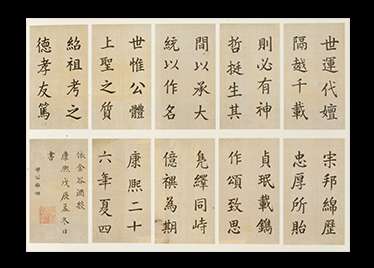 世運代嬗
隔越千載
則必有神
哲挺生其
間以承大
統以作名
世惟公體
上聖之質
紹祖考之
德孝友篤
宗邦綿歷
忠厚所貽
貞珉載鐫
作頌致思
鳧繹同峙
億禩為期
康熙二十
六年夏四
依金谷酒數
康熙戊辰孟冬日
書